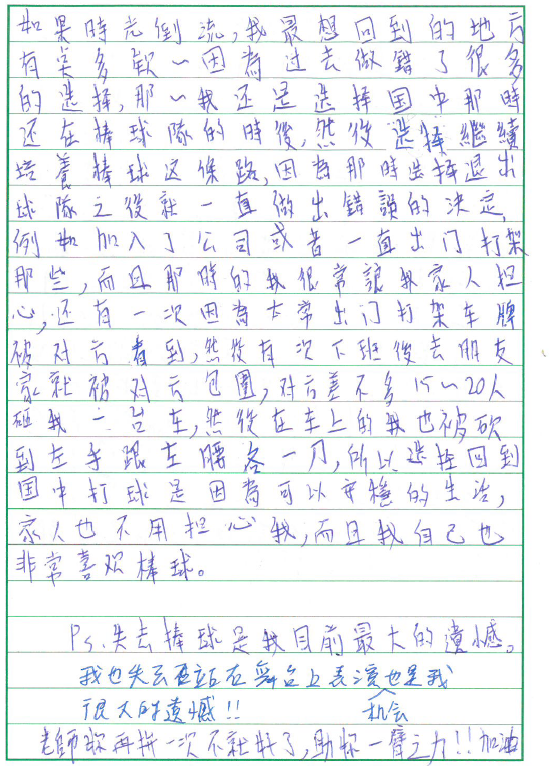 如果時光倒流,我最想回到的地方
有蠻多歐~因為 过去做錯了很多
的选择,那~我还是选择国中那時
还在棒球隊的時後,然後 选择繼續
培養棒球这條路,因為那時选择退出
球隊之後就一直做出錯誤的决定,
例如加入了公司或者一直出门打架
那些,而且那時的我很常讓我家人担
心,还有一次因為太常出门打架车牌
被对方看到,然後有次下班後去朋友
家就被对方包圍,对方差不多15~20人
砸我一台车,然後在车上的我也被砍
到左手跟左腰各一刀,所以选择回到
国中打球是因為可以安穩的生活,
家人也不用担心我,而且我自己也
非常喜欢棒球。
Ps.失去棒球是我目前最大的遺憾。
我也失去再站在舞台上表演机会也是我
很大的遺憾!!
老師你再拼一次不就好了,助你一臂之力!!加油